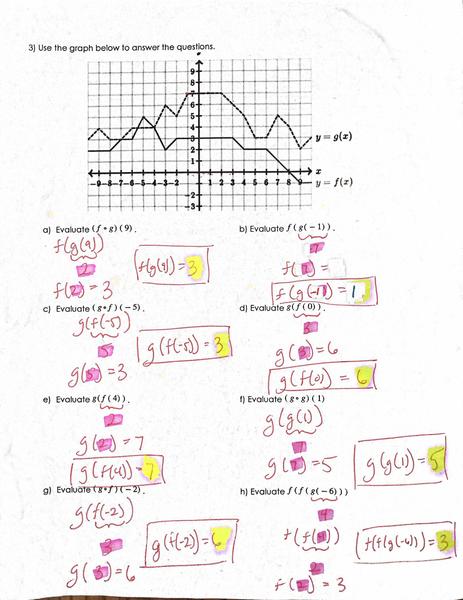 3) Use the graph below to answer the questions.
9
8
7
6
5
4
3
2
1
y = g(x)
x
-9 -8 -7 -6 -5 -4 -3 -2 1 2 3 4 5 6 7 8 9
y = f(x)
-2
-3
a) Evaluate (f∘g)(9).
f(g(9))
2
f(2) = 3
f(g(9)) = 3
b) Evaluate f(g(-1)).
7
f(7) =
f(g(-1)) = 1
c) Evaluate (g∘f)(-5).
g(f(-5))
5
g(5) = 3
g(f(-5)) = 3
d) Evaluate g(f(0)).
3
g(3) = 6
g(f(0)) = 6
e) Evaluate g(f(4)).
2
g(2) = 7
g(f(4)) = 7
f) Evaluate (g∘g)(1)
g(g(1))
7
g(7) = 5
g(g(1)) = 5
g) Evaluate (g∘f)(-2).
g(f(-2))
3
g(3) = 6
g(f(-2)) = 6
h) Evaluate f(f(g(-6)))
4
f(f(4))
2
f(2) = 3
f(f(g(-6))) = 3